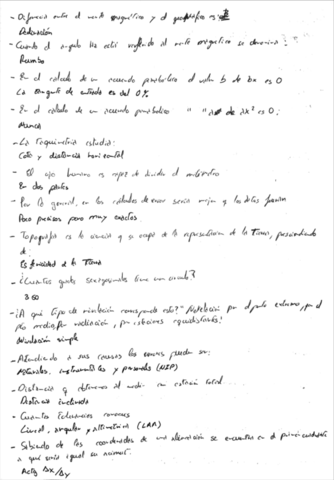 - Diferencia entre el norte magnético y el geográfico es:
Declinación
- Cuando el angulo Hz está referido al norte magnetico se denomina:
Rumbo
- En el calculo de un acuerdo parabolico el valor b de bx es 0
La tangente de entrada es del 0%
- En el calculo de un acuerdo parabolico " " de ax² es 0:
Nunca
- La taquimetria estudia:
Cota y distancia horizontal
- El ojo humano es capaz de dividir el milimetro
En dos partes
- Por lo general, en los de error seria mejor q los datos fueran
Poco precisos pero muy exactos
- Topografia es la ciencia q se ocupa de la representacion de la Tierra, prescindiendo
de:
Esfericidad de la Tierra
- ¿Cuantos grados sexagesimales tiene una circunf?
360
- ¿A qué tipo de nivelación corresponde esto? Nivelación por el punto extremo, por el
pto medio, por estaciones equidistantes?
Nivelación simple
- Atendiendo a sus causas los errores pueden ser:
Naturales, instrumentales y personales (NIP)
- Distancia q obtenemos al medir con estación total
Distancia inclinada
- Cuantas tolerancias conoces
Lineal, angular y altimetrica (LAA)
- Sabiendo de las coordenadas de una alineación se encuentra en el primer cuadrante
a qué seria igual su acimut.
Actg Δx/Δy